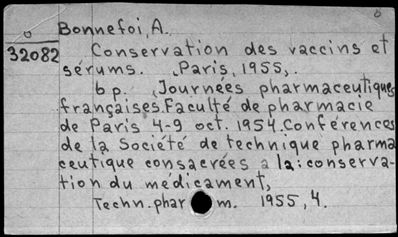 Bonnefoi, A.
32082
Conservation des vaccins et
sérums. Paris, 1955,.
6 p. Journées pharmaceutiques
françaises. Faculté de pharmacie
de Paris 4-9 oct. 1954. Conférences
de la Société de technique pharma
ceutique consacrées a la: conserva-
tion du médicament,
Techn. pharm. 1955, 4.